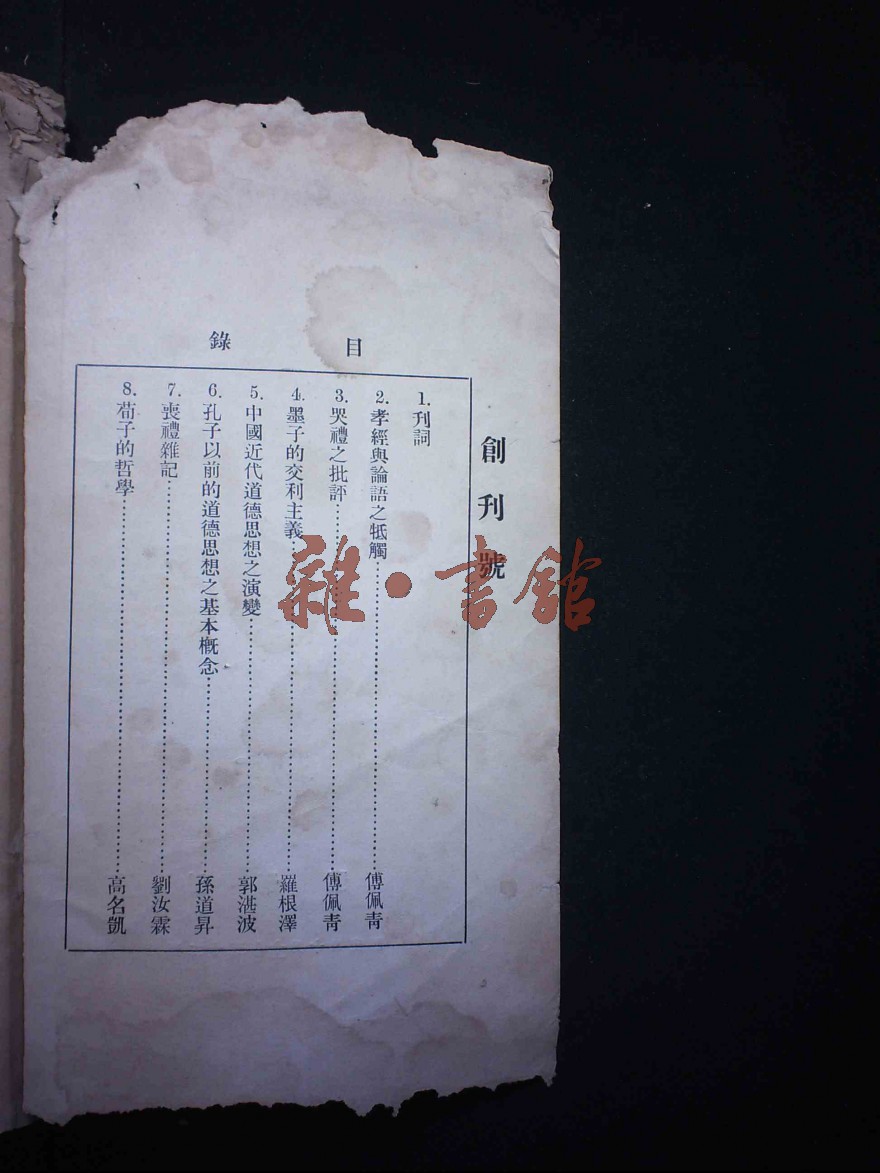 創刊號
目錄
1. 刋詞
2. 孝經與論語之牴觸……傅佩靑
3. 哭禮之批評……傅佩靑
4. 墨子的交利主義……羅根澤
5. 中國近代道德思想之演變……郭湛波
6. 孔子以前的道德思想之基本槪念……孫道昇
7. 喪禮雜記……劉汝霖
8. 荀子的哲學……高名凱
雜·書館